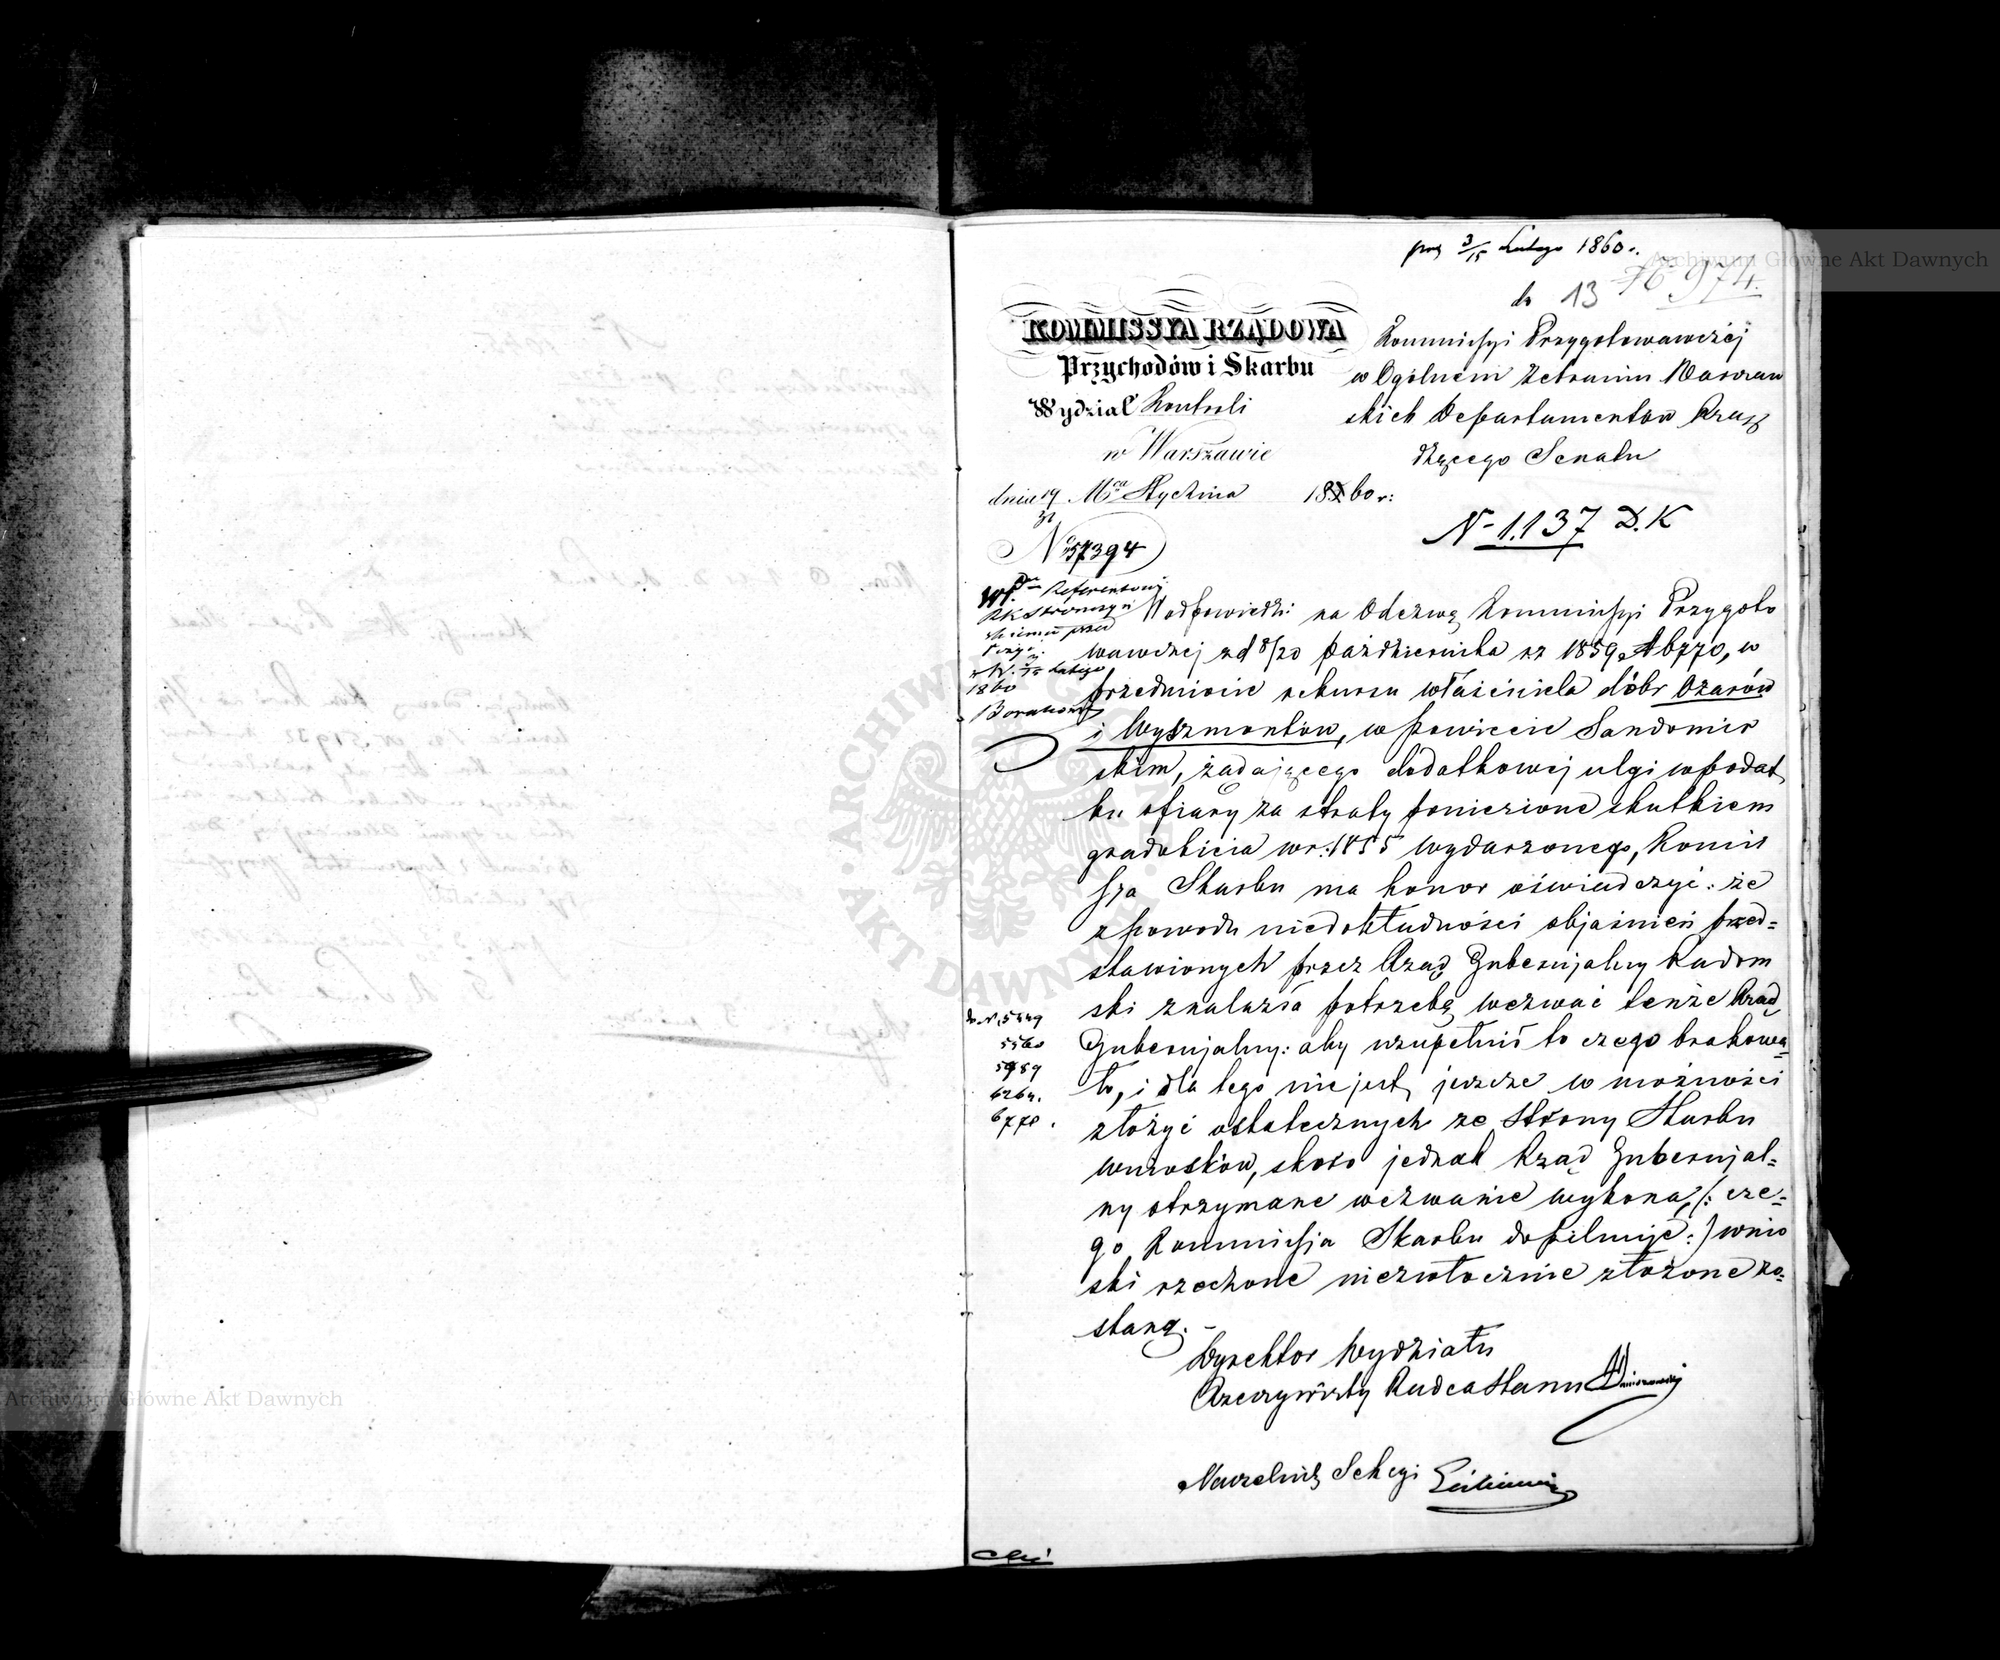 prez 3/15 Lutego 1860 r.
№ 974.
do 13
KOMMISSYA RZĄDOWA
Przychodów i Skarbu
Wydział Kontroli
w Warszawie
dnia 19/31 Mca Stycznia 1860 r:
N 57394
Kommissyi Przygotowawczéj
w Ogólnem Zebraniu Warszaw
skich Departamentów Rząd
dzącego Senatu
N 1.137 D.K
Referentowi
1860
W odpowiedzi na Odezwę Kommissyi Przygoto
wawczej z d 8/20 Października rz 1859 № 6770, w
przedmiocie rekursu właściciela dóbr Ożarów
i Wyszmontów, w Powiecie Sandomir
skim, żądającego dodatkowej ulgi w podat
ku ofiary za straty poniesione skutkiem
gradobicia w r: 1855 wydarzonego, Komis
sya Skarbu ma honor oświadczyć: że
z powodu niedokładności objaśnień przed=
stawionych przez Rząd Gubernjalny Radom
ski znalazła potrzebę wezwać tenże Rząd
Gubernjalny: aby uzupełnił to czego brakowa=
ło, i dla tego nie jest jeszcze w możności
złożyć ostatecznych ze strony Skarbu
wniosków, skoro jednak Rząd Gubernjal=
ny otrzymane wezwanie wykona, /: cze=
go Kommissja Skarbu dopilnuje :/ wnio
ski rzeczone niezwłocznie złożone zo=
staną. -
do N. 5449
5560
5989
6264.
6770.
Dyrektor Wydziału
Rzeczywisty Radca Stanu
Naczelnik Sekcyi
Archiwum Główne Akt Dawnych
Archiwum Główne Akt Dawnych
ARCHIWUM GŁÓWNE AKT DAWNYCH